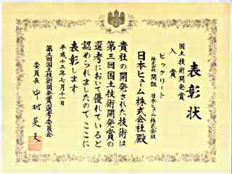 表彰状
国土技術開発賞
入賞
ビックリート
日本ヒューム株式会社殿
貴社の開発された技術は
第三回国土技術開発賞の
選考において優れていると
認められましたのでここに
表彰します
平成十三年七月十一日
第三回国土技術開発賞選考委員会
委員長 中村英夫